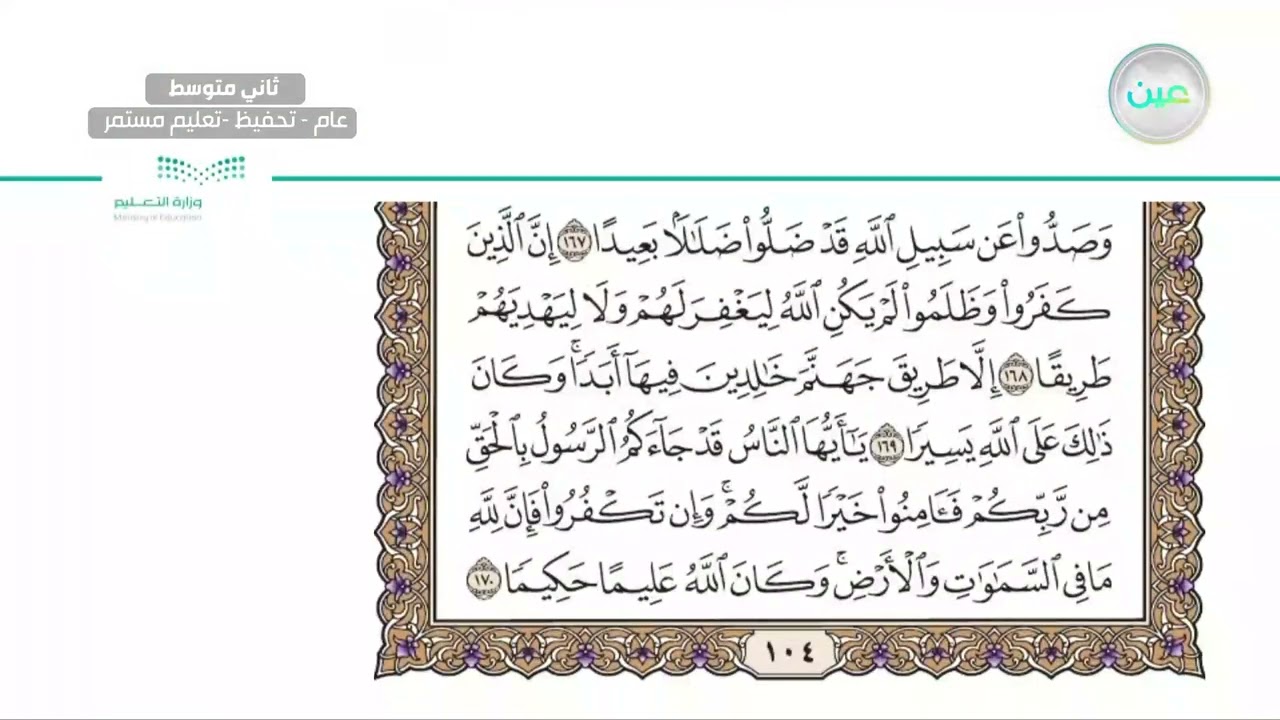 ثاني متوسط
عام - تحفيظ -تعليم مستمر
عين
وزارة التعـــليم
Ministry of Education
وَصَدُّوا۟ عَن سَبِيلِ ٱللَّهِ قَدْ ضَلُّوا۟ ضَلَٰلًۢا بَعِيدًا ١٦٧ إِنَّ ٱلَّذِينَ
كَفَرُوا۟ وَظَلَمُوا۟ لَمْ يَكُنِ ٱللَّهُ لِيَغْفِرَ لَهُمْ وَلَا لِيَهْدِيَهُمْ
طَرِيقًا ١٦٨ إِلَّا طَرِيقَ جَهَنَّمَ خَٰلِدِينَ فِيهَآ أَبَدًۭا ۚ وَكَانَ
ذَٰلِكَ عَلَى ٱللَّهِ يَسِيرًۭا ١٦٩ يَٰٓأَيُّهَا ٱلنَّاسُ قَدْ جَآءَكُمُ ٱلرَّسُولُ بِٱلْحَقِّ
مِن رَّبِّكُمْ فَـَٔامِنُوا۟ خَيْرًۭا لَّكُمْ ۚ وَإِن تَكْفُرُوا۟ فَإِنَّ لِلَّهِ
مَا فِى ٱلسَّمَٰوَٰتِ وَٱلْأَرْضِ ۚ وَكَانَ ٱللَّهُ عَلِيمًا حَكِيمًۭا ١٧٠
١٠٤